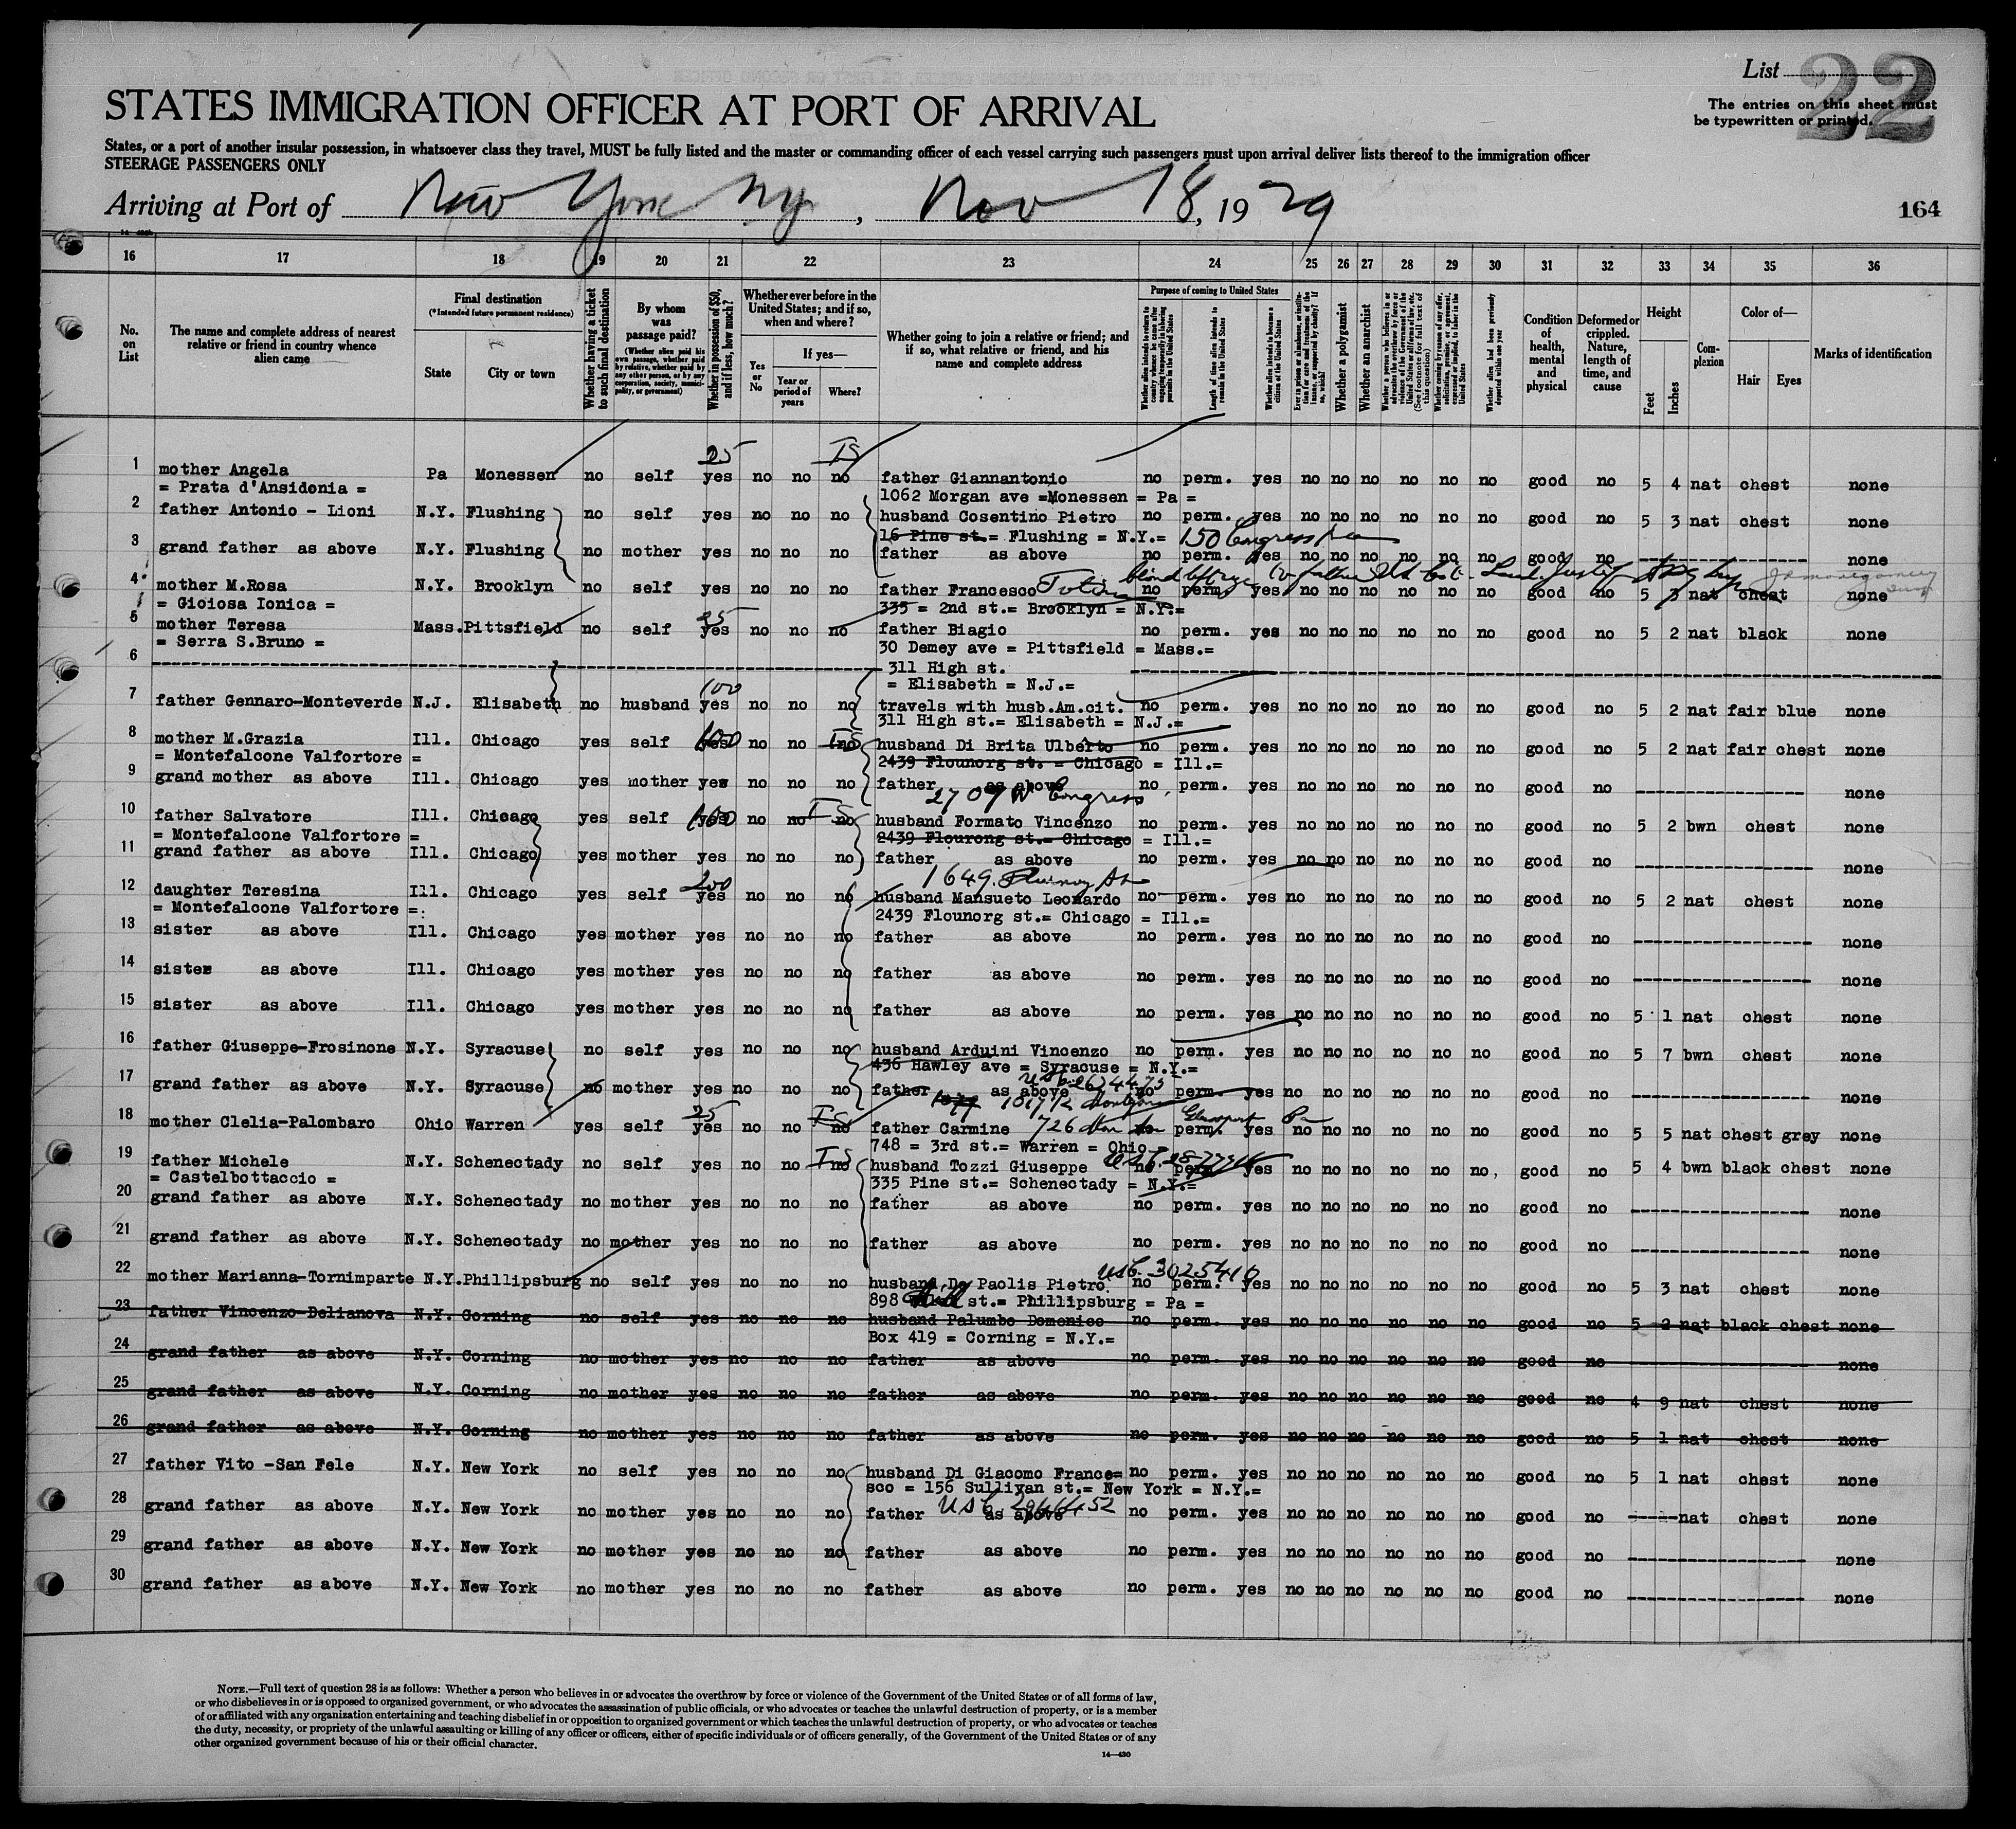 List 22
The entries on this sheet must
be typewritten or printed.
STATES IMMIGRATION OFFICER AT PORT OF ARRIVAL
States, or a port of another insular possession, in whatsoever class they travel, MUST be fully listed and the master or commanding officer of each vessel carrying such passengers must upon arrival deliver lists thereof to the immigration officer
STEERAGE PASSENGERS ONLY
Arriving at Port of New York NY, Nov 18, 1929
164
16 17 18 19 20 21 22 23 24 25 26 27 28 29 30 31 32 33 34 35 36
No. on List
The name and complete address of nearest relative or friend in country whence alien came
Final destination
(*Intended future permanent residence)
State
City or town
Whether having a ticket to such final destination
By whom was passage paid?
(Whether alien paid his own passage, whether paid by relative, whether paid by any other person, or by any corporation, society, municipality, or government)
Whether in possession of $50, and if less, how much?
Whether ever before in the United States; and if so, when and where?
Yes or No
If yes—
Year or period of years
Where?
Whether going to join a relative or friend; and if so, what relative or friend, and his name and complete address
Purpose of coming to United States
Length of time alien intends to remain in the United States
Whether alien intends to become a citizen of the United States
Whether a polygamist
Whether an anarchist
Whether alien had been previously deported within one year
Condition of health, mental and physical
Deformed or crippled. Nature, length of time, and cause
Height
Feet
Inches
Complexion
Color of—
Hair
Eyes
Marks of identification
25 IS
1 mother Angela Pa Monessen no self yes no no no father Giannantonio no perm. yes no no no no no no good no 5 4 nat chest none
= Prata d'Ansidonia = 1062 Morgan ave =Monessen = Pa =
2 father Antonio - Lioni N.Y. Flushing no self yes no no no husband Cosentino Pietro no perm. yes no no no no no no good no 5 3 nat chest none
16 Pine st.= Flushing = N.Y.= 150 Congress
3 grand father as above N.Y. Flushing no mother yes no no no father as above no perm. yes no no no no no no good no ---------- none
4 mother M.Rosa N.Y. Brooklyn no self yes no no no father Francesco no perm. yes no no no no no no good no 5 3 nat chest none
= Gioiosa Ionica = 335 = 2nd st.= Brooklyn = N.Y.=
25
5 mother Teresa Mass. Pittsfield no self yes no no no father Biagio no perm. yes no no no no no no good no 5 2 nat black none
= Serra S.Bruno = 30 Demey ave = Pittsfield = Mass.=
6 ---------- 311 High st. ----------
= Elisabeth = N.J.=
100
7 father Gennaro-Monteverde N.J. Elisabeth no husband yes no no no travels with husb.Am.cit. no perm. yes no no no no no no good no 5 2 nat fair blue none
311 High st.= Elisabeth = N.J.=
8 mother M.Grazia Ill. Chicago yes self yes no no no husband Di Brita Ulberto no perm. yes no no no no no no good no 5 2 nat fair chest none
= Montefalcone Valfortore = 2439 Flounorg st. = Chicago = Ill.=
9 grand mother as above Ill. Chicago yes mother yes no no no father as above no perm. yes no no no no no no good no ---------- none
2709 W Congress
10 father Salvatore Ill. Chicago yes self yes no no no husband Formato Vincenzo no perm. yes no no no no no no good no 5 2 bwn chest none
= Montefalcone Valfortore = 2439 Flourong st.= Chicago = Ill.=
11 grand father as above Ill. Chicago yes mother yes no no no father as above no perm. yes no no no no no no good no ---------- none
200 1649
12 daughter Teresina Ill. Chicago yes self yes no no no husband Mansueto Leonardo no perm. yes no no no no no no good no 5 2 nat chest none
= Montefalcone Valfortore = 2439 Flounorg st.= Chicago = Ill.=
13 sister as above Ill. Chicago yes mother yes no no no father as above no perm. yes no no no no no no good no ---------- none
14 sister as above Ill. Chicago yes mother yes no no no father as above no perm. yes no no no no no no good no ---------- none
15 sister as above Ill. Chicago yes mother yes no no no father as above no perm. yes no no no no no no good no 5 1 nat chest none
16 father Giuseppe-Frosinone N.Y. Syracuse no self yes no no no husband Arduini Vincenzo no perm. yes no no no no no no good no 5 7 bwn chest none
436 Hawley ave = Syracuse = N.Y.=
17 grand father as above N.Y. Syracuse no mother yes no no no father as above no perm. yes no no no no no no good no ---------- none
25 IS
18 mother Clelia-Palombaro Ohio Warren yes self yes no no no father Carmine 726 no perm. yes no no no no no no good no 5 5 nat chest grey none
748 = 3rd st.= Warren = Ohio
19 father Michele N.Y. Schenectady no self yes no no no husband Tozzi Giuseppe no perm. yes no no no no no no good no 5 4 bwn black chest none
= Castelbottaccio = 335 Pine st.= Schenectady = N.Y.=
20 grand father as above N.Y. Schenectady no mother yes no no no father as above no perm. yes no no no no no no good no ---------- none
21 grand father as above N.Y. Schenectady no mother yes no no no father as above no perm. yes no no no no no no good no ---------- none
USC. 3025410
22 mother Marianna-Tornimparte N.Y. Phillipsburg no self yes no no no husband De Paolis Pietro no perm. yes no no no no no no good no 5 3 nat chest none
898 st.= Phillipsburg = Pa =
23 father Vincenzo-Delianova N.Y. Corning no self yes no no no husband Palumbo Domenico no perm. yes no no no no no no good no 5 2 nat black chest none
Box 419 = Corning = N.Y.=
24 grand father as above N.Y. Corning no mother yes no no no father as above no perm. yes no no no no no no good no ---------- none
25 grand father as above N.Y. Corning no mother yes no no no father as above no perm. yes no no no no no no good no 4 9 nat chest none
26 grand father as above N.Y. Corning no mother yes no no no father as above no perm. yes no no no no no no good no 5 1 nat chest none
27 father Vito -San Fele N.Y. New York no self yes no no no husband Di Giacomo France= no perm. yes no no no no no no good no 5 1 nat chest none
sco = 156 Sullivan st.= New York = N.Y.=
28 grand father as above N.Y. New York no mother yes no no no father as above no perm. yes no no no no no no good no ----- nat chest none
29 grand father as above N.Y. New York no mother yes no no no father as above no perm. yes no no no no no no good no ---------- none
30 grand father as above N.Y. New York no mother yes no no no father as above no perm. yes no no no no no no good no ---------- none
NOTE.—Full text of question 28 is as follows: Whether a person who believes in or advocates the overthrow by force or violence of the Government of the United States or of all forms of law,
or who disbelieves in or is opposed to organized government, or who advocates the assassination of public officials, or who advocates or teaches the unlawful destruction of property, or is a member
of or affiliated with any organization entertaining and teaching disbelief in or opposition to organized government or which teaches the unlawful destruction of property, or who advocates or teaches
the duty, necessity, or propriety of the unlawful assaulting or killing of any officer or officers, either of specific individuals or of officers generally, of the Government of the United States or of any
other organized government because of his or their official character.
14—430